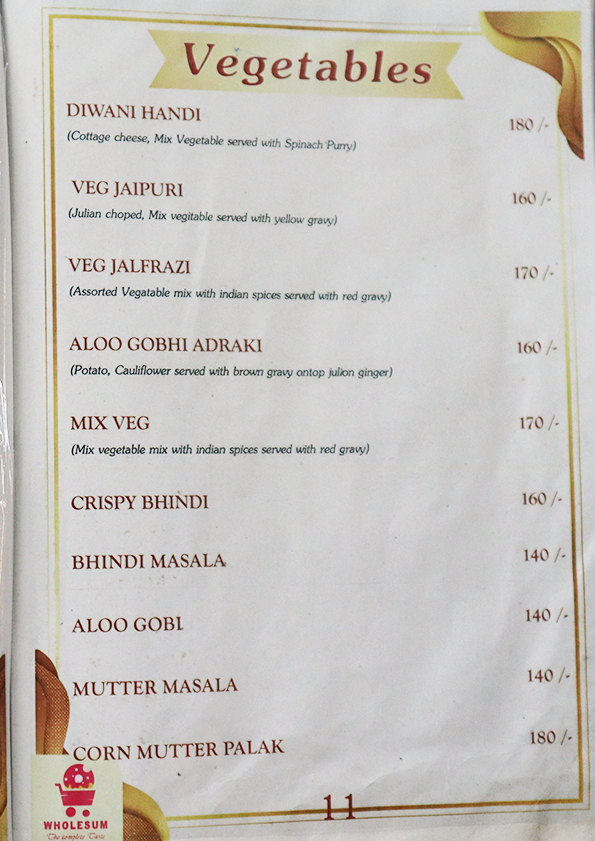 Vegetables
DIWANI HANDI 180 /-
(Cottage cheese, Mix Vegetable served with Spinach Purry)
VEG JAIPURI 160 /-
(Julian choped, Mix vegitable served with yellow gravy)
VEG JALFRAZI 170 /-
(Assorted Vegatable mix with indian spices served with red gravy)
ALOO GOBHI ADRAKI 160 /-
(Potato, Cauliflower served with brown gravy ontop julion ginger)
MIX VEG 170 /-
(Mix vegetable mix with indian spices served with red gravy)
CRISPY BHINDI 160 /-
BHINDI MASALA 140 /-
ALOO GOBI 140 /-
MUTTER MASALA 140 /-
CORN MUTTER PALAK 180 /-
11
WHOLESUM
The complete Taste